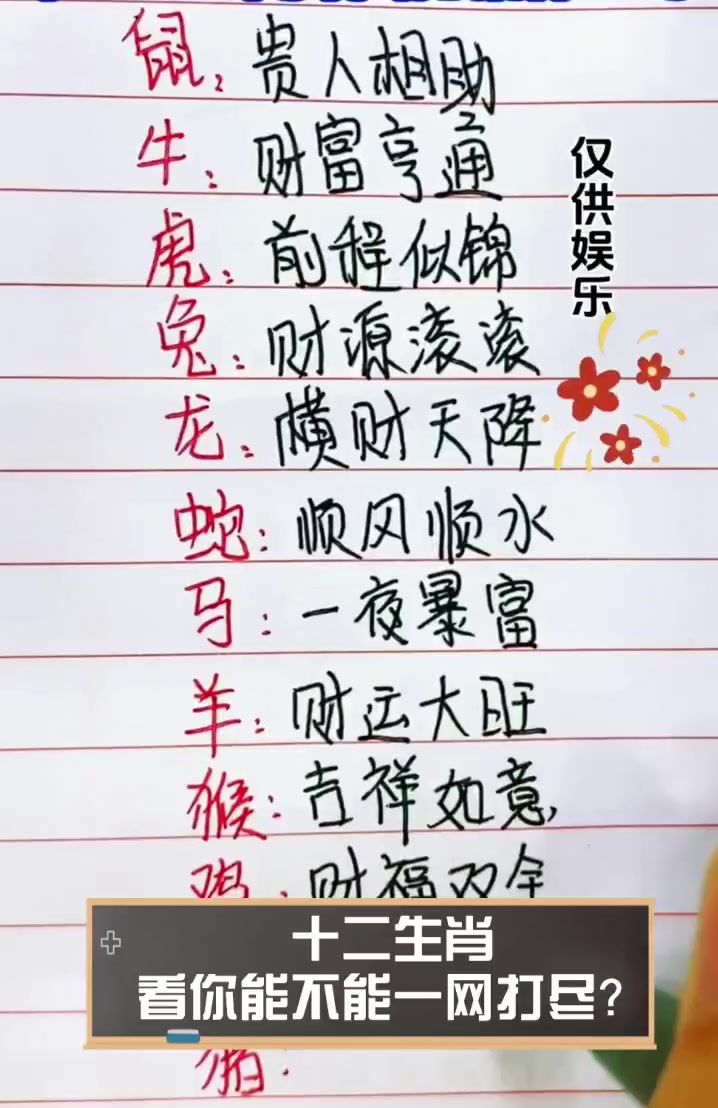 鼠：贵人相助
牛：财富亨通
虎：前程似锦
兔：财源滚滚
龙：横财天降
蛇：顺风顺水
马：一夜暴富
羊：财运大旺
猴：吉祥如意，
鸡：财福双全
仅供娱乐
十二生肖
看你能不能一网打尽？
猪：